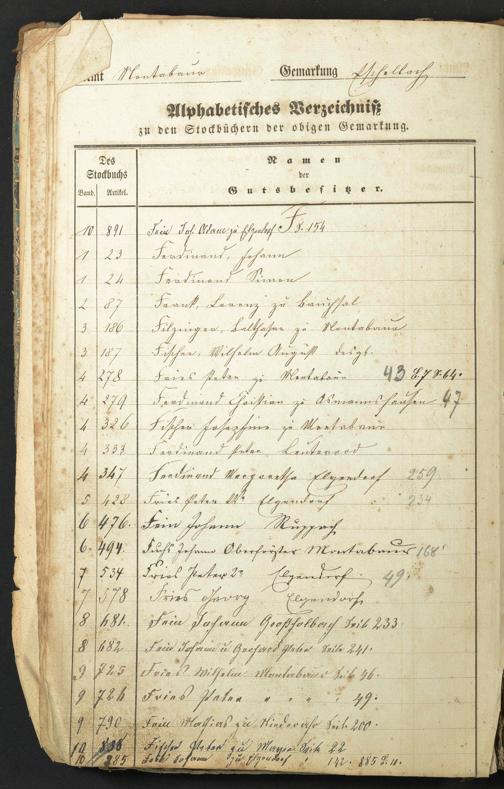 Amt Montabaur Gemarkung Eschelbach
Alphabetisches Verzeichniß
zu den Stockbüchern der obigen Gemarkung.
Des Stockbuchs
Namen der Gutsbesitzer.
Band. Artikel.
F
10 891 Fein Joh. Adam zu Elgendorf S. 154
1 23 Ferdinand, Johann
1 24 Ferdinand Simon
2 87 Frank, Lorenz zu Bruchsal
3 186 Filzinger, Balthasar zu Montabaur
3 187 Fischer, Wilhelm August desgl.
4 278 Fries Peter zu Montabaur 43 S. 64.
4 279 Ferdinand Christian zu Asmannshausen 47
4 326 Fischer Josephine zu Montabaur
4 333 Ferdinand Peter Leuterod
4 347 Ferdinand Margaretha Elgendorf 259
5 422 Fries Peter 2r Elgendorf 234
6 476. Fein Johann Ruppach
6. 494. Fuchs Johann Montabaur 168
7 534 Fries Peter 2r Elgendorf. 49.
7 578 Fries Georg Elgendorf
8 681. Fein Johann Großholbach Seite 233
8 682 Fein Johann u Gerhard Peter Seite 241.
9 725 Fries Wilhelm Montabaur Seite 46.
9 726 Fries Peter " " " 49.
9 790 Fein Mathias zu Niederahr Seite 200.
10 Fischer Peter zu Seite 22
10 885 Johann zu Elgendorf " 142. 885